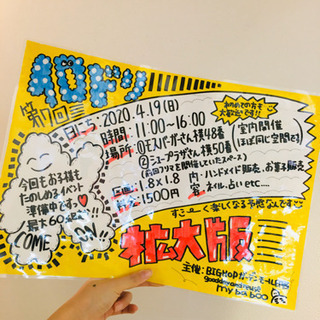 第17回
日にち:2020.4.19(日)
時間:11:00~16:00
場所:①モスバーガーさん横48番
②ニュープラザさん横50番
(前回フリマを開催していたスペース)
1.8×1.8
1500円
内容:ハンドメイド販売、お菓子販売
ネイル、占いetc...
初めての方も
大歓迎です!!
室内開催
(ほぼ同じ空間です)
今回もお子様も
たのしめるイベント
準備中です
最大60
COME ON
すご〜く楽しくなる予感なんです
拡大版
主催:BIGHOPガーデンモール印西
my ba boo